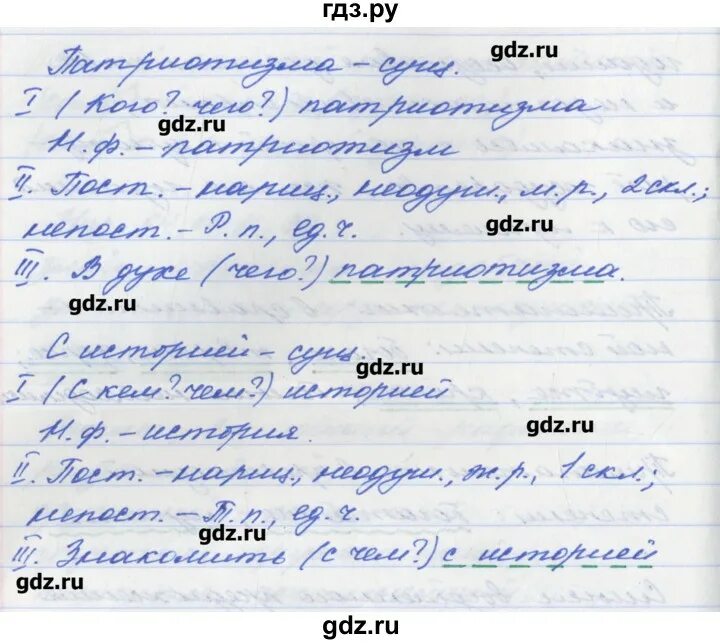 гдз.ру
Патриотизма – сущ.
gdz.ru
I (Кого? чего?) патриотизма
gdz.ru
Н.ф. – патриотизм
II. Пост. – нариц., неодуш., м.р., 2 скл.;
непост. – Р. п., ед. ч.
gdz.ru
III. В духе (чего?) патриотизма.
gdz.ru
С историей – сущ.
gdz.ru
I (С кем? чем?) историей
Н.ф. – история.
gdz.ru
II. Пост. – нариц., неодуш., ж.р., 1 скл.;
непост. – Т. п., ед. ч.
gdz.ru
III. Знакомить (с чем?) с историей
gdz.ru
gdz.ru